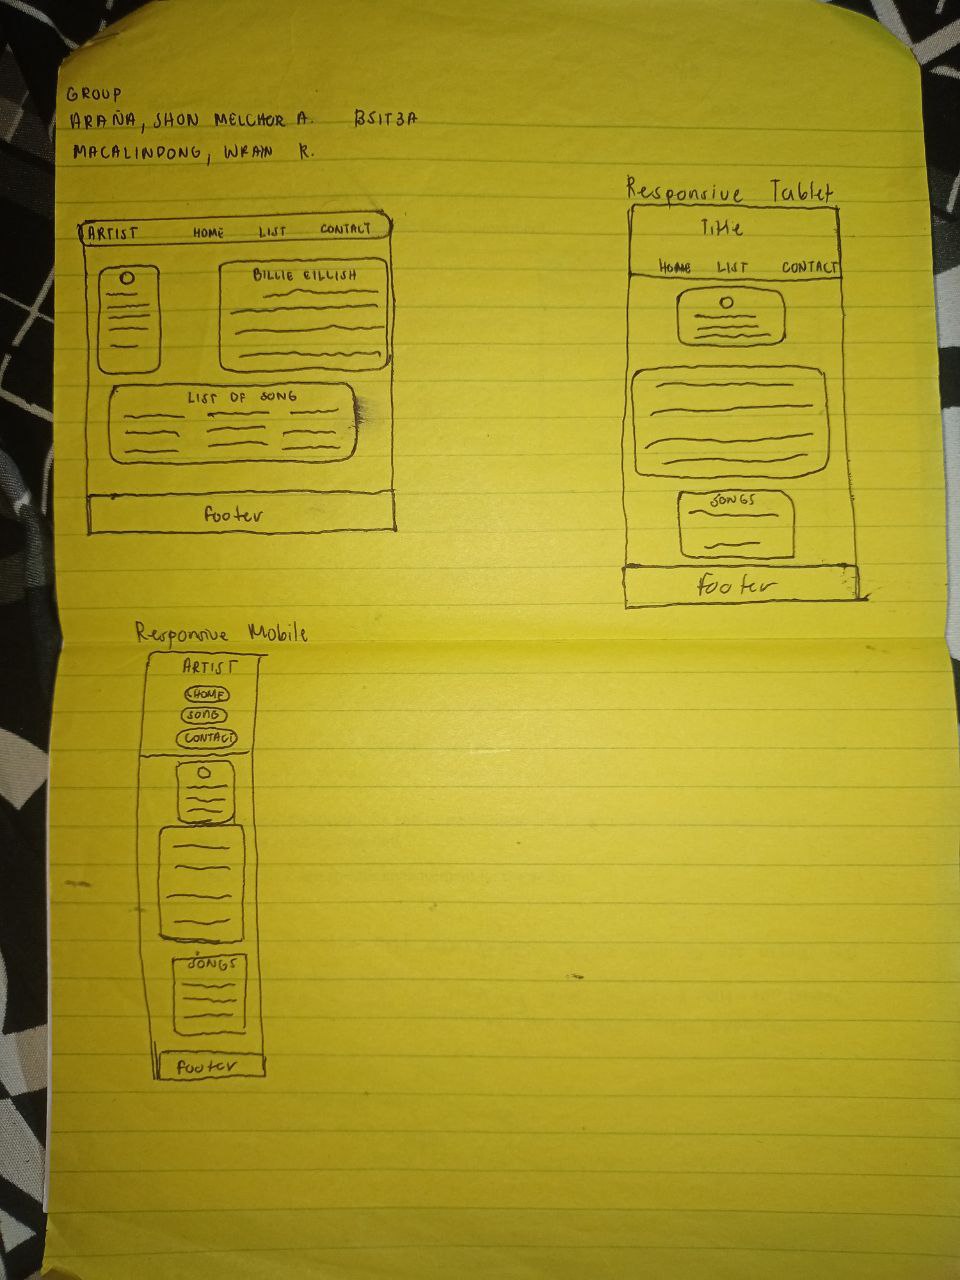 GROUP
ARAÑA, SHON MELCHOR A. BSIT3A
MACALINDONG, WRAIN R.
ARTIST HOME LIST CONTACT
BILLIE EILLISH
LIST OF SONG
footer
Responsive Tablet
Title
HOME LIST CONTACT
SONGS
footer
Responsive Mobile
ARTIST
HOME
SONG
CONTACT
SONGS
footer